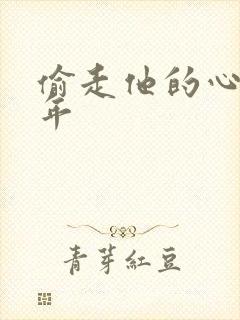 偷走他的心
年
青芽紅豆